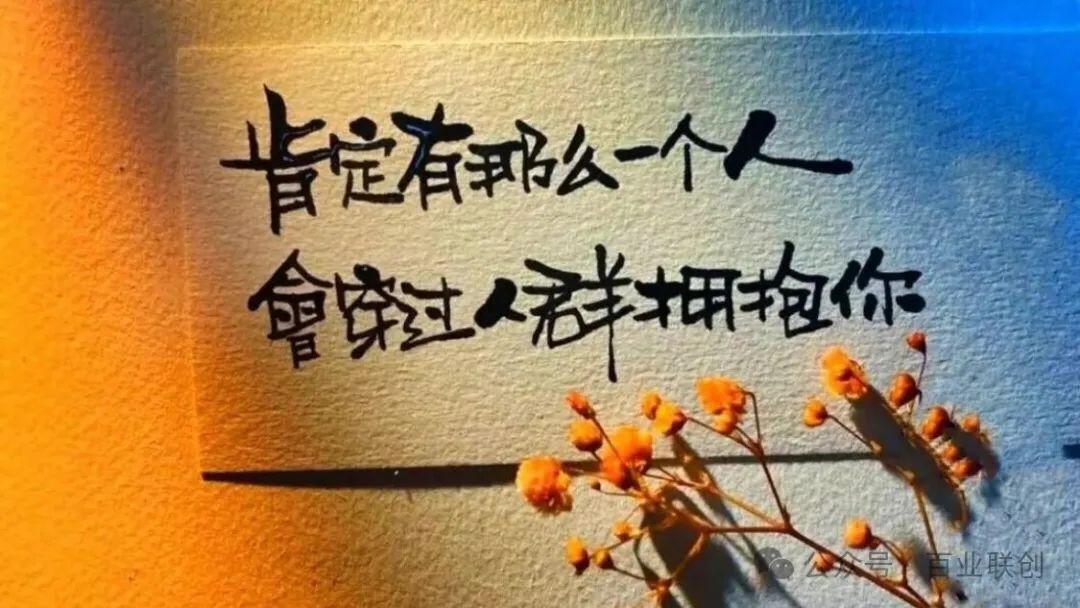 肯定有那么一个人
會穿过人群拥抱你
公众号 · 百业联创